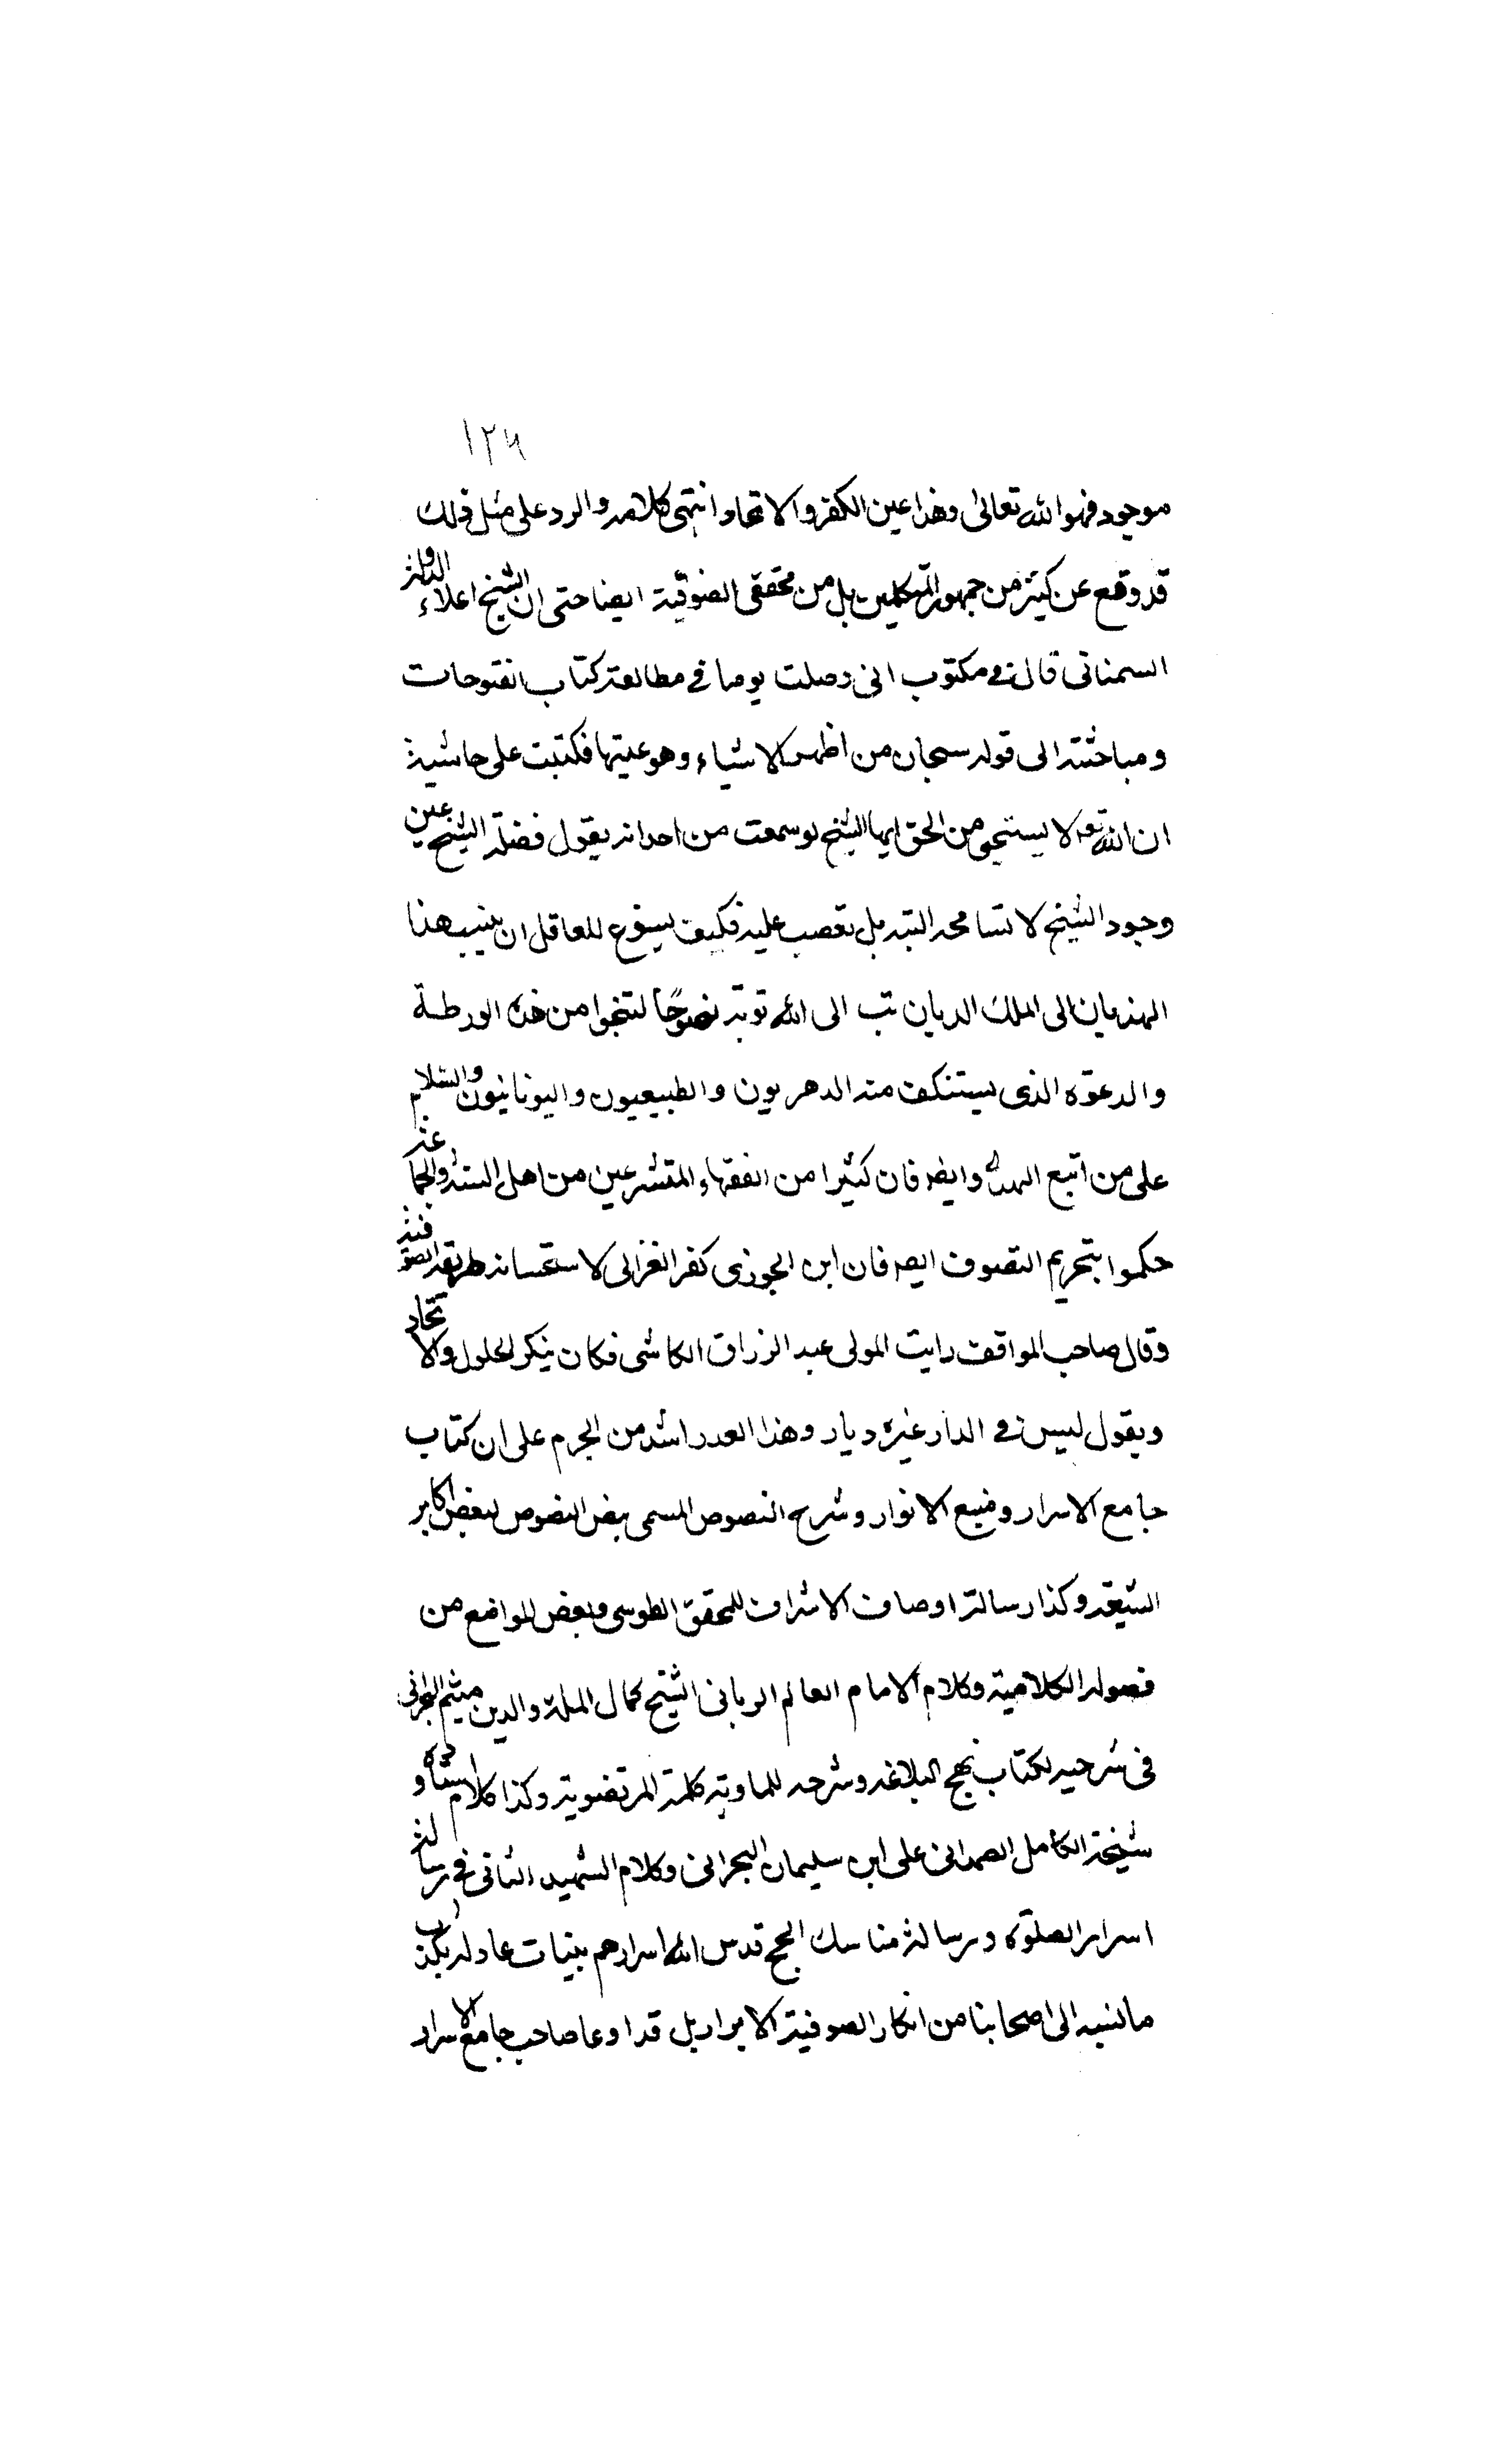 ١٢٩
موجود فهو الله تعالى وهذا عين الكفر والاتحاد انتهى كلامه والرد على مثل ذلك
قد وقع عن كثير من جمهور المتكلمين بل من محققى الصوفية ايضا حتى ان الشيخ اعلاء الدولة
السمنانى قال فى مكتوب انى وصلت يوما فى مطالعة كتاب الفتوحات
ومباحثته الى قوله سبحان من اظهر الاشياء وهو عينها فكتبت على حاشية
ان الله تعه لا يستحيى من الحق ايها الشيخ لو سمعت من احد انه يقول فضلة الشيخ عين
وجود الشيخ لا تسامحه البته بل تغصب عليه فكيف يسوغ للعاقل ان ينسب هذا
الهذيان الى الملك الديان تب الى الله توبة نصوحًا لتنجوا من هذه الورطة
والدعوه الذى يستنكف منه الدهريون والطبيعيون واليونانيون والسلام
على من اتبع الهدى وايضا فان كثيرا من الفقهاء المتشرعين من اهل السنة والجماعة
حكموا بتحريم التصوف ايضه فان ابن الجوزى كفر الغزالى لاستحسانه طريقه الصوفية
وقال صاحب المواقف رايت المولى عبد الرزاق الكاشى فكان ينكر الحلول والاتحاد
ويقول ليس فى الدار غيره ديار وهذا العدر اشد من الجرم على ان كتاب
جامع الاسرار ومنبع الانوار وشرح الفصوص المسمى بنص النصوص لبعض اكابر
الشيعة وكذا رسالة اوصاف الاشراف للمحقق الطوسى وبعض المواضع من
فصوله الكلامية وكلام الامام العالم الربانى الشيخ كمال الملة والدين ميثم البحرانى
فى شرحيه لكتاب نهج البلاغه وشرحه للماوية كلمة المرتضوية وكذا كلام استاده و
شيخة الكامل الصمدانى على ابن سليمان البحرانى وكلام الشهيد الثانى فى رسالة
اسرار الصلوة ورسالة مناسك الحج قدس الله اسرارهم بينات عادله بكذب
ما نسبه الى اصحابنا من انكار الصوفية الابرار بل قد اوعا صاحب جامع الاسرار